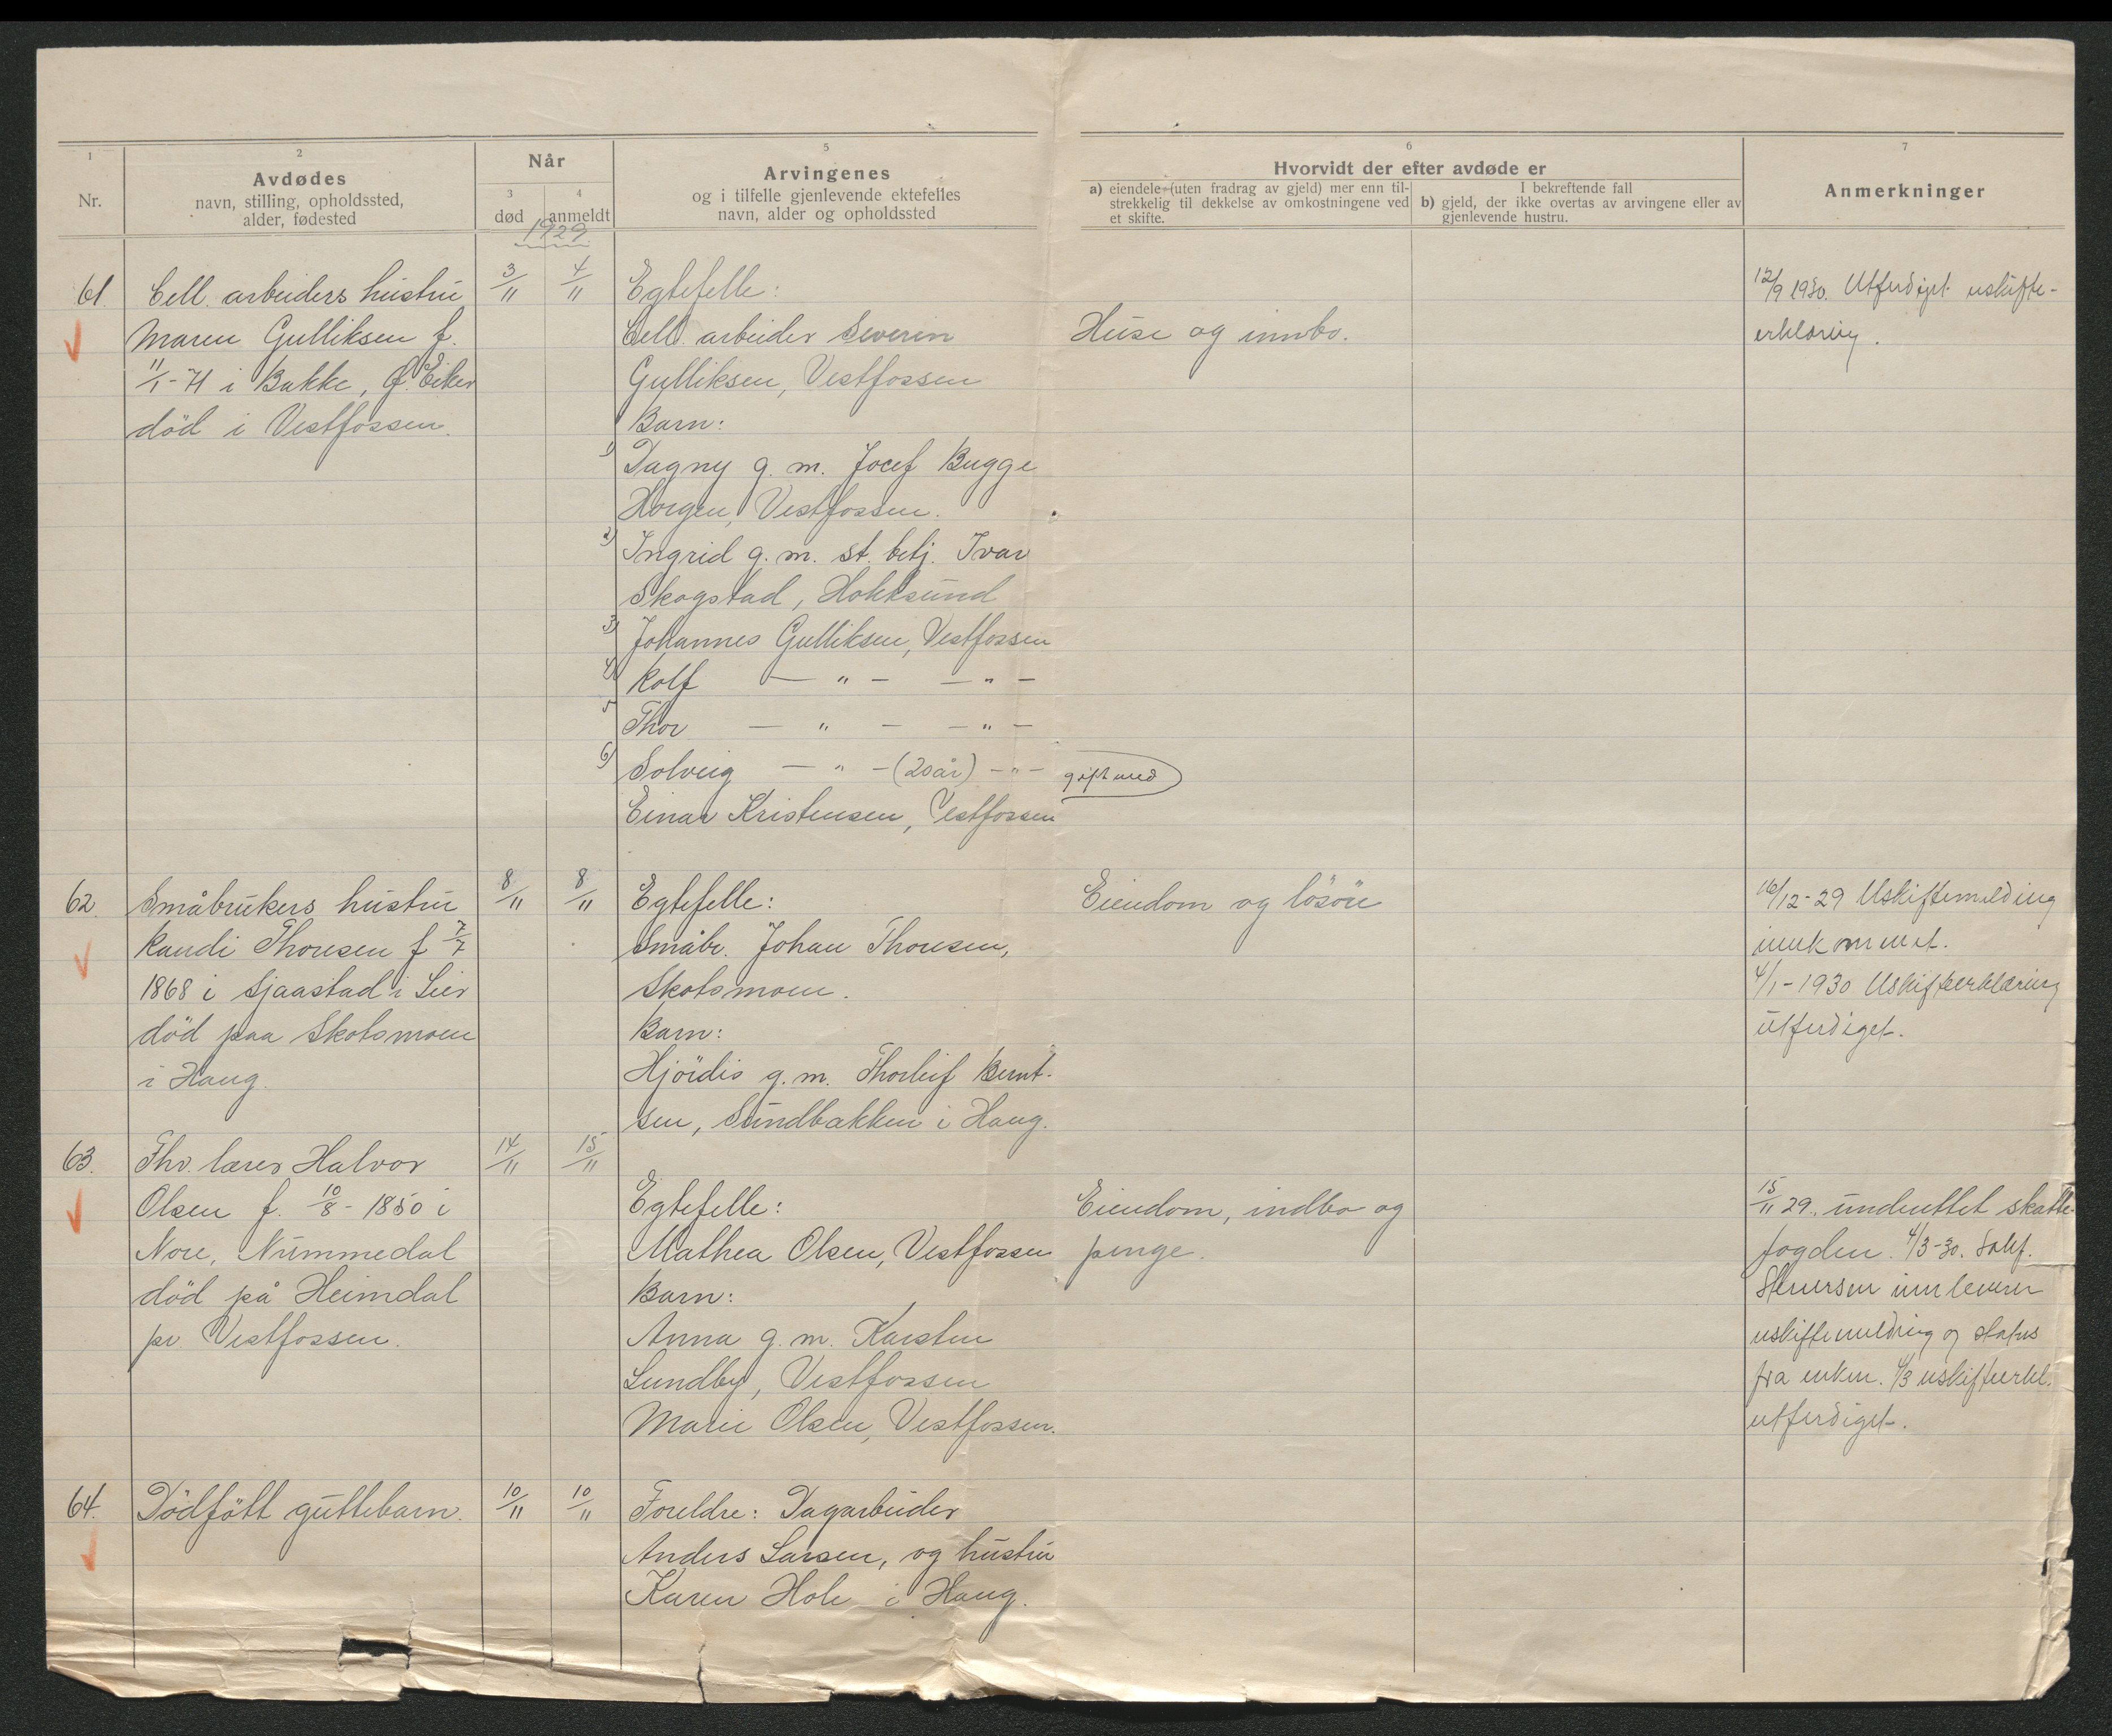 1
Nr.
2
Avdødes
navn, stilling, opholdssted,
alder, fødested
Når
3
død
4
anmeldt
5
Arvingenes
og i tilfelle gjenlevende ektefelles
navn, alder og opholdssted
6
Hvorvidt der efter avdøde er
a) eiendele (uten fradrag av gjeld) mer enn til-
strekkelig til dekkelse av omkostningene ved
et skifte.
I bekreftende fall
b) gjeld, der ikke overtas av arvingene eller av
gjenlevende hustru.
7
Anmerkninger
1929
61.
Cell. arbeiders hustru
Maren Gulliksen f.
11/1-71 i Bakke, Ø. Eiker
död i Vestfossen.
3/11
4/11
Egtefelle:
Cell. arbeider Severin
Gulliksen, Vestfossen
Barn:
1) Dagny g. m. Jocef Bugge
Horgen, Vestfossen.
2) Ingrid g. m. st. betj. Ivar
Skogstad, Hokksund
3) Johannes Gulliksen, Vestfossen
4) Rolf — " — — " —
5 Thor — " — — " —
6) Solveig — " — (20 år) — " — gift med
Einar Kristensen, Vestfossen
Huse og innbo.
12/9 1930. Utferdiget uskifte-
erklæring.
62.
Småbrukers hustru
Randi Thonsen f 7/7
1868 i Sjaastad i Lier
död paa Skotsmoen
i Haug.
8/11
8/11
Egtefelle:
Småbr. Johan Thonsen,
Skotsmoen.
Barn:
Hjördis g. m. Thorleif Bernt-
sen, Sundbakken i Haug.
Eiendom og lösöre
16/12-29 Uskiftemelding
innkommet.
4/1-1930 Uskifteerklæring
utferdiget.
63.
Fhv. lærer Halvor
Olsen f. 10/8-1850 i
Nore, Nummedal
död på Heimdal
pr Vestfossen.
14/11
15/11
Egtefelle:
Mathea Olsen, Vestfossen
Barn:
Anna g. m. Karsten
Lundby, Vestfossen
Marie Olsen, Vestfossen.
Eiendom, indbo og
penge.
15/11 29. underettet skatte-
fogden. 4/3-30. Sakf.
innleverer
uskiftemelding og status
fra enken. 4/3 uskifteerkl.
utferdiget.
64.
Dödfött guttebarn.
10/11
10/11
Foreldre: Dagarbeider
Anders Larsen, og hustru
Karen Hole i Haug.